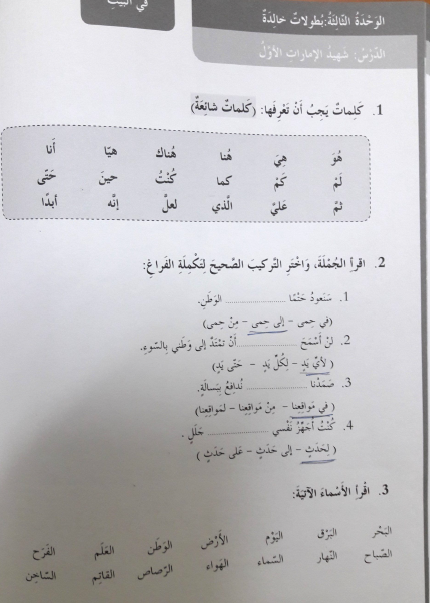 في البيت
الوَحْدَةُ الثّالِثَةُ: بُطولاتٌ خالِدَةٌ
الدَّرْسُ: شَهيدُ الإماراتِ الأوَّلُ
1. كَلِماتٌ يَجِبُ أَنْ تَعْرِفَها: (كَلِماتٌ شائِعَةٌ)
هُوَ هِيَ هُنا هُناك هيّا أَنا
لَمْ كَمْ كما كُنْتُ حينَ حَتّى
ثمَّ عَليَّ الَّذي لعلَّ إنَّه أبدًا
2. اقرأِ الجُمْلَةَ، وَاخْترِ التَّركيبَ الصَّحيحَ لِتَكْمِلَةِ الفَراغِ:
1. سَنَعودُ حَتْمًا .................... الوَطَنِ.
(في حِمى – إلى حِمى – مِنْ حِمى)
2. لنْ أَسْمَحَ .................... أَنْ تَمْتَدَّ إلى وَطَني بِالسّوءِ.
( لأيِّ يَدٍ – لِكُلِّ يَدٍ – حَتّى يَدٍ)
3. صَمَدْنا .................... نُدافِعُ بِبَسالَةٍ.
( في مَواقِعِنا – مِنْ مَواقِعِنا – لمَواقِعِنا)
4. كُنْتُ أُجَهِّزُ نَفْسي .................... جَلَلٍ .
( لِحَدَثٍ – إلى حَدَثٍ – عَلى حَدَثٍ )
3. اقْرأِ الأَسْماءَ الآتيَةَ:
البَحْر البَرْق اليَوْم الأَرْض الوَطَن العَلَم الفَرَح
الصَّباح النَّهار السَّماء الهَواء الرَّصاص القائِم السّاخِن